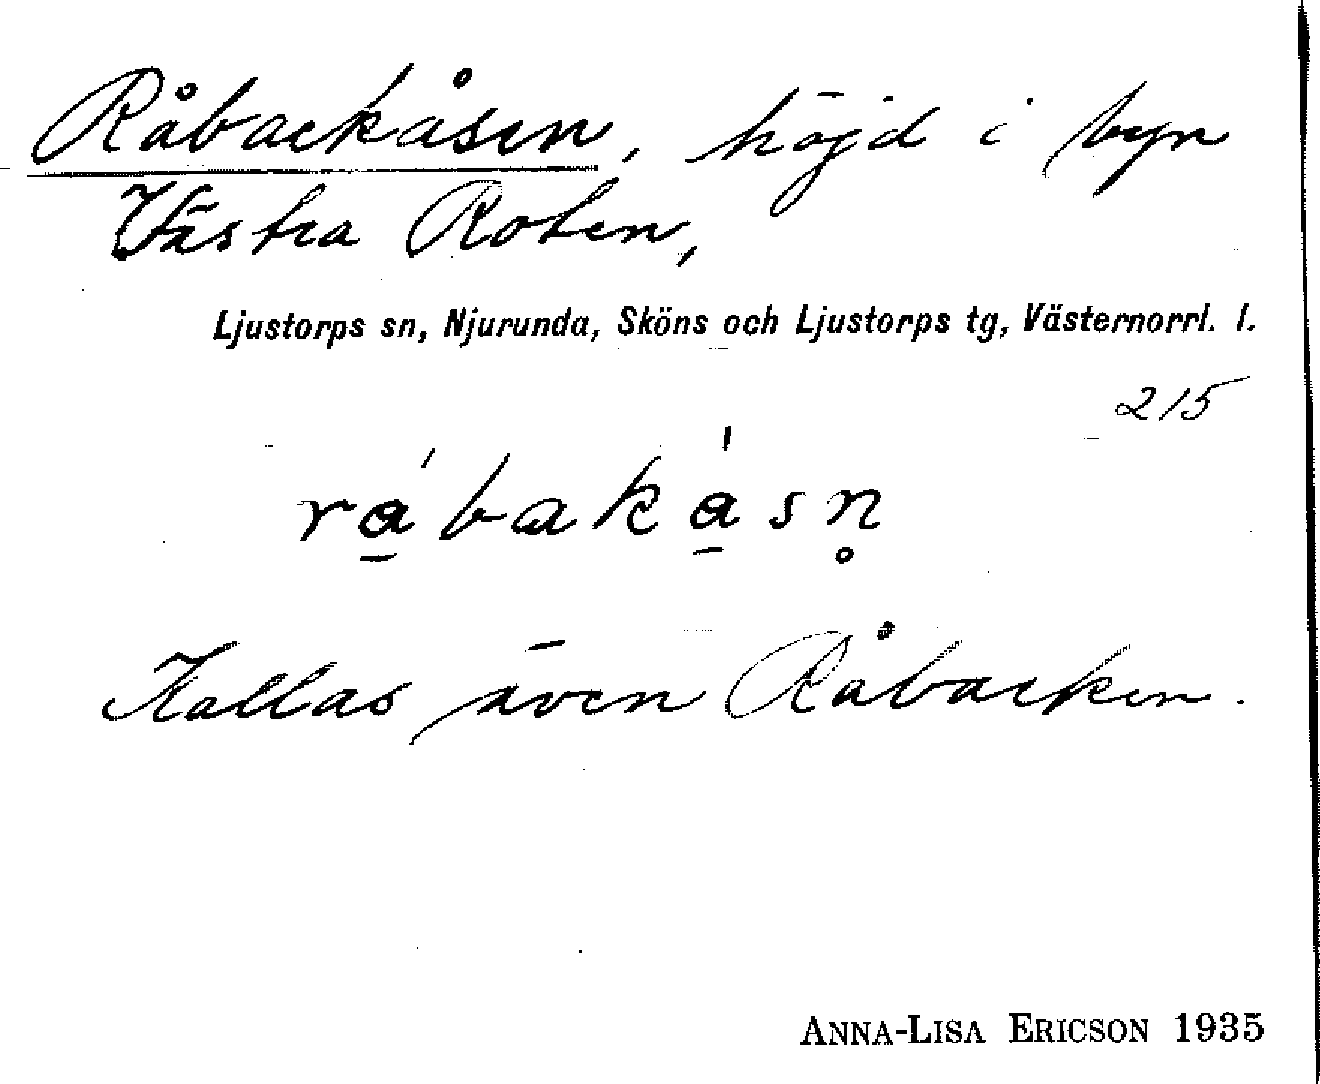 Råbackåsen, höjd i byn
Västra Roten,
Ljustorps sn, Njurunda, Sköns och Ljustorps tg, Västernorrl. l.
215
rá̱baká̱sn̥
Kallas även Råbacken.
ANNA-LISA ERICSON 1935